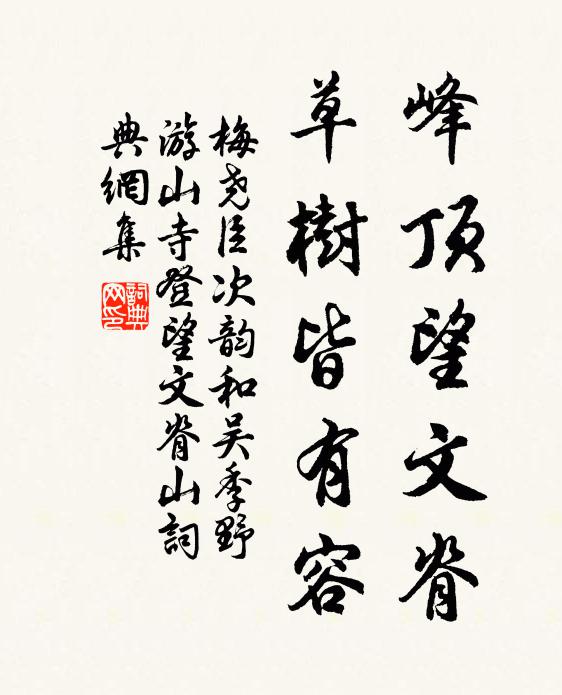 峰顶望文脊
草樹皆有容
梅尧臣次韵和吴季野
游山寺登望文脊山詞
典網集
詞典
网印